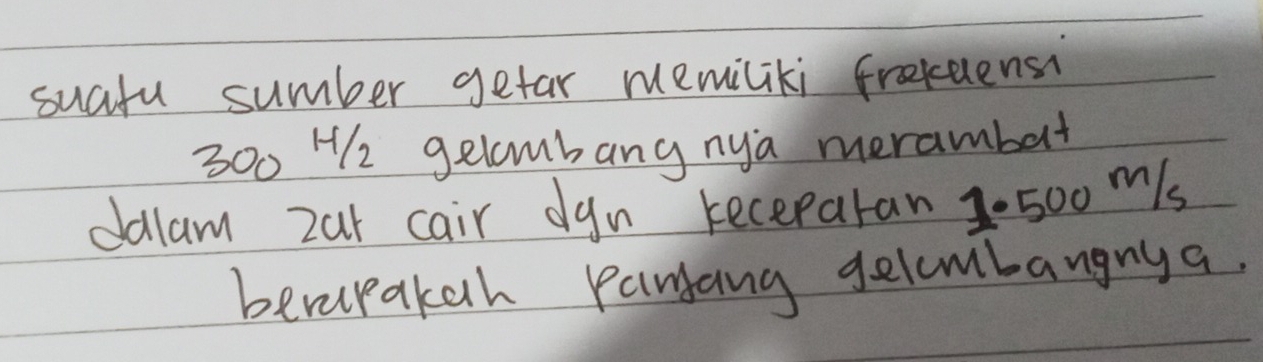 suatu sumber getar memiliki frekuensi
300 H/2 gelombang nya merambat
dalam zat cair dgn kecepatan 1.500 m/s
berapakah panjang gelombangnya.